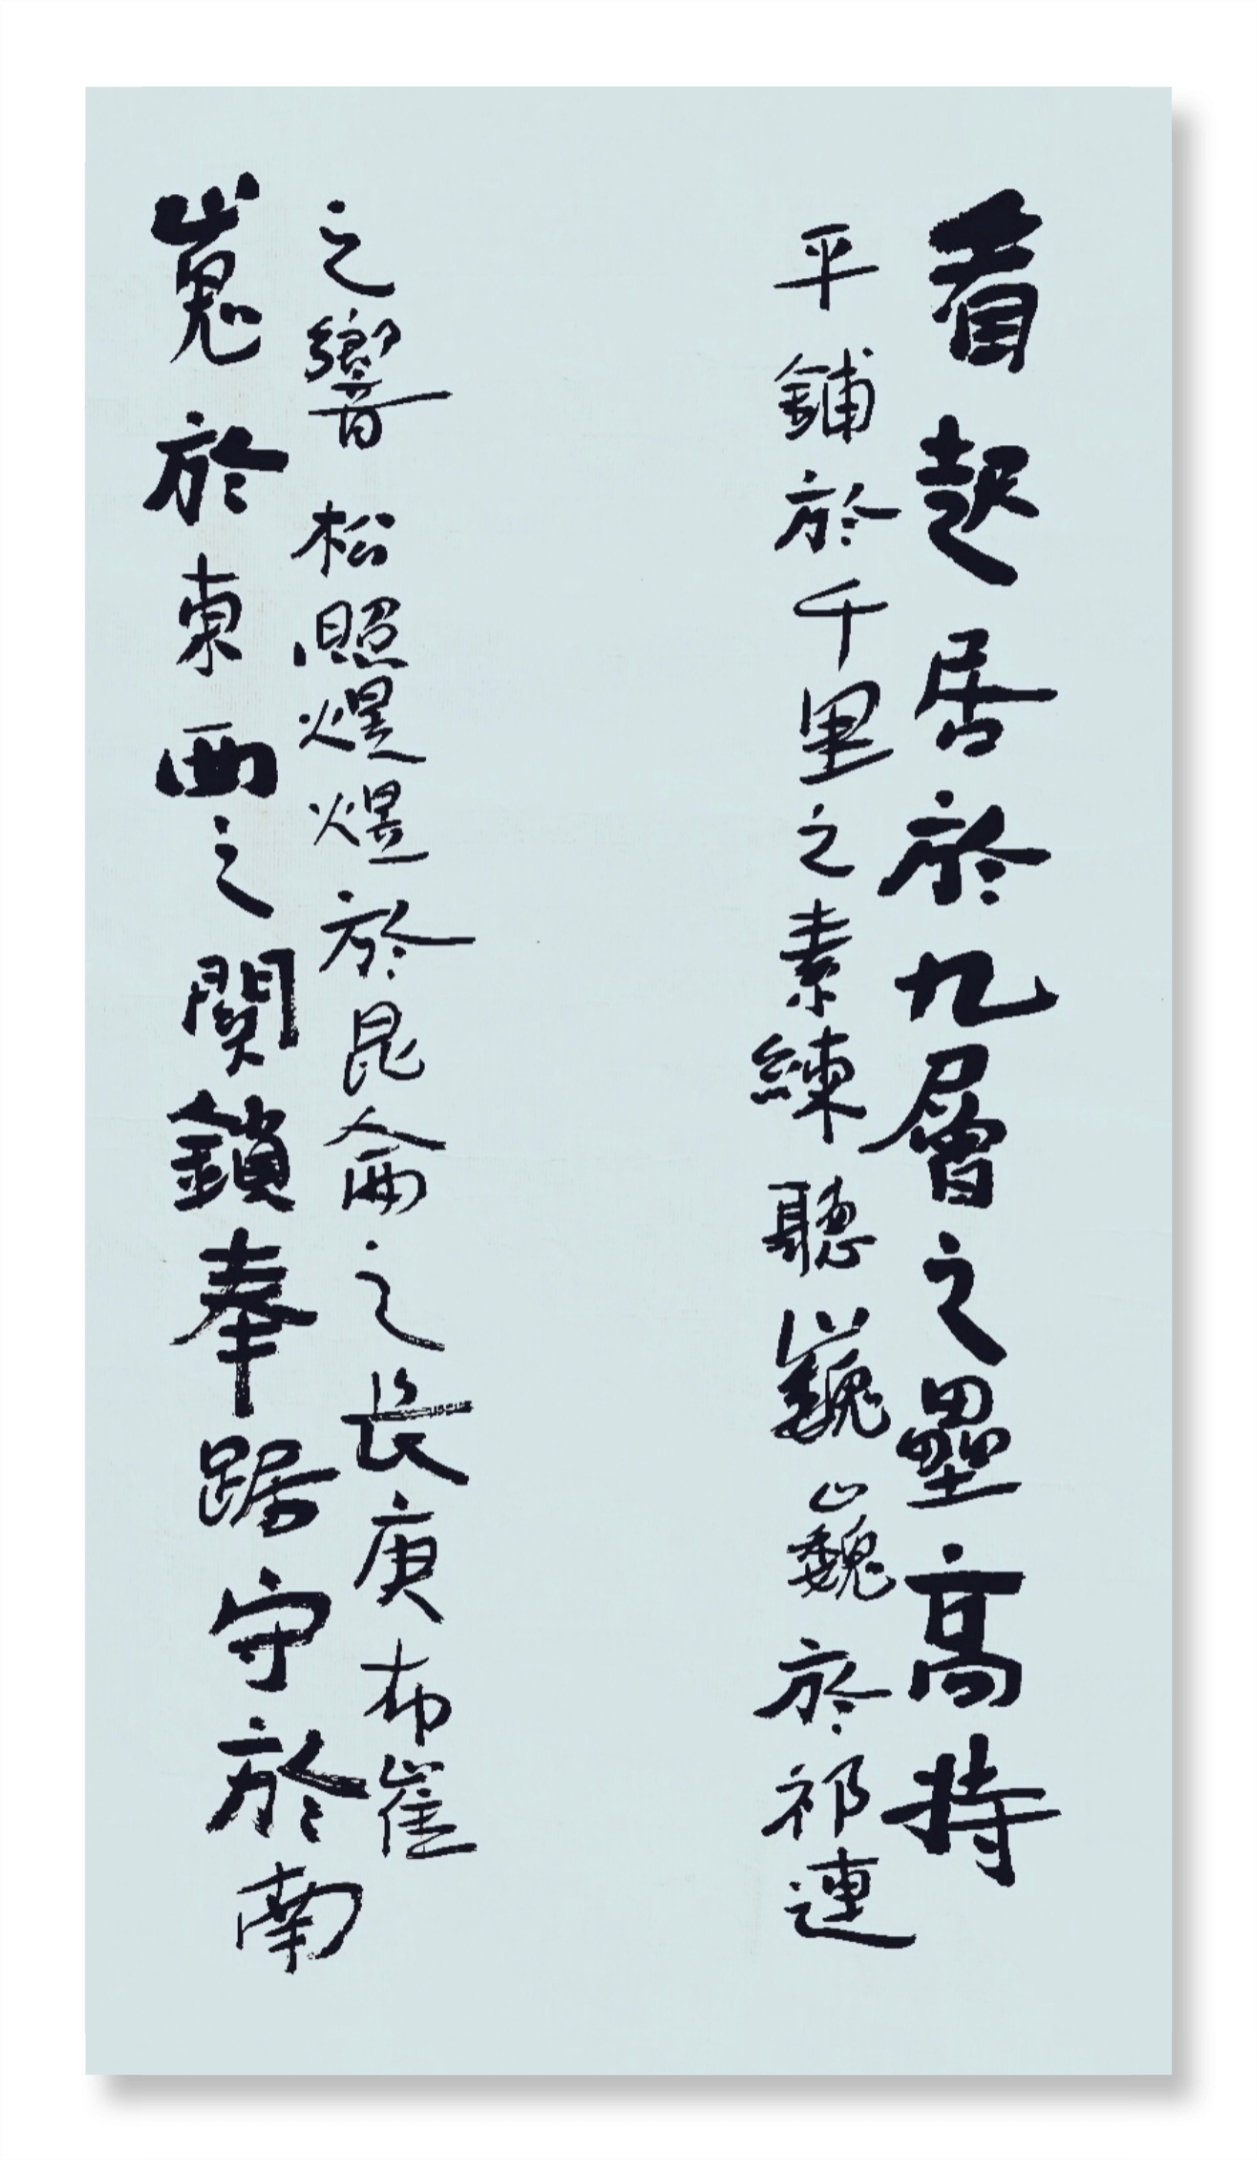 看起居於九層之壘高持
平鋪於千里之素練聽巍巍於祁連
之響松照煜煜於昆侖之長庚布崔
嵬於東西之関鎖奉踞守於南